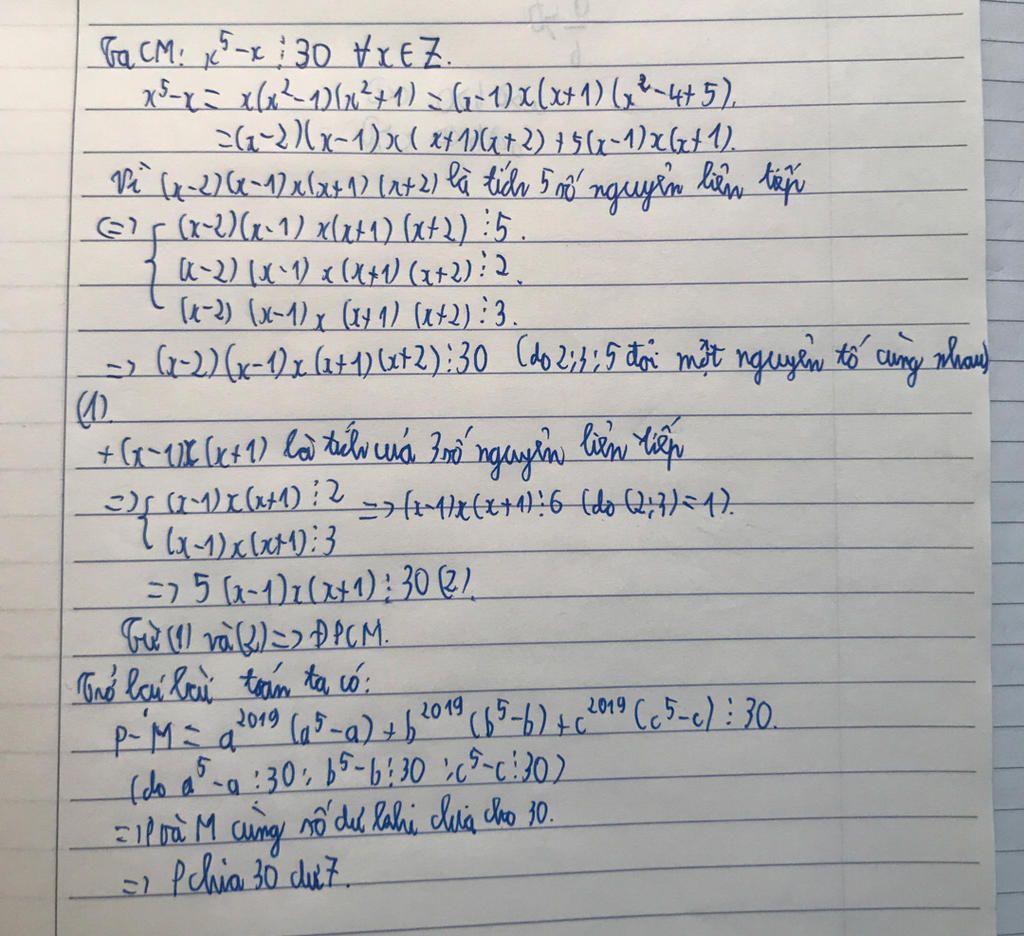 Ta CM: x⁵-x ⋮ 30 ∀x∈Z.
x⁵-x = x(x²-1)(x²+1) = (x-1)x(x+1)(x²-4+5).
=(x-2)(x-1)x(x+1)(x+2)+5(x-1)x(x+1).
Vì (x-2)(x-1)x(x+1)(x+2) là tích 5 số nguyên liên tiếp
(=> { (x-2)(x-1)x(x+1)(x+2) ⋮ 5.
(x-2)(x-1)x(x+1)(x+2) ⋮ 2.
(x-2)(x-1)x(x+1)(x+2) ⋮ 3.
=> (x-2)(x-1)x(x+1)(x+2) ⋮ 30 (do 2;3;5 đôi một nguyên tố cùng nhau)
(1).
+(x-1)x(x+1) là tích của 3 số nguyên liên tiếp
=> { (x-1)x(x+1) ⋮ 2 => (x-1)x(x+1) ⋮ 6 (do (2;3)=1).
(x-1)x(x+1) ⋮ 3
=> 5(x-1)x(x+1) ⋮ 30 (2).
Từ (1) và (2) => ĐPCM.
Trở lại bài toán ta có:
P-M = a²⁰¹⁹(a⁵-a)+b²⁰¹⁹(b⁵-b)+c²⁰¹⁹(c⁵-c) ⋮ 30.
(do a⁵-a ⋮ 30; b⁵-b ⋮ 30; c⁵-c ⋮ 30)
=> P và M cùng số dư khi chia cho 30.
=> P chia 30 dư 7.